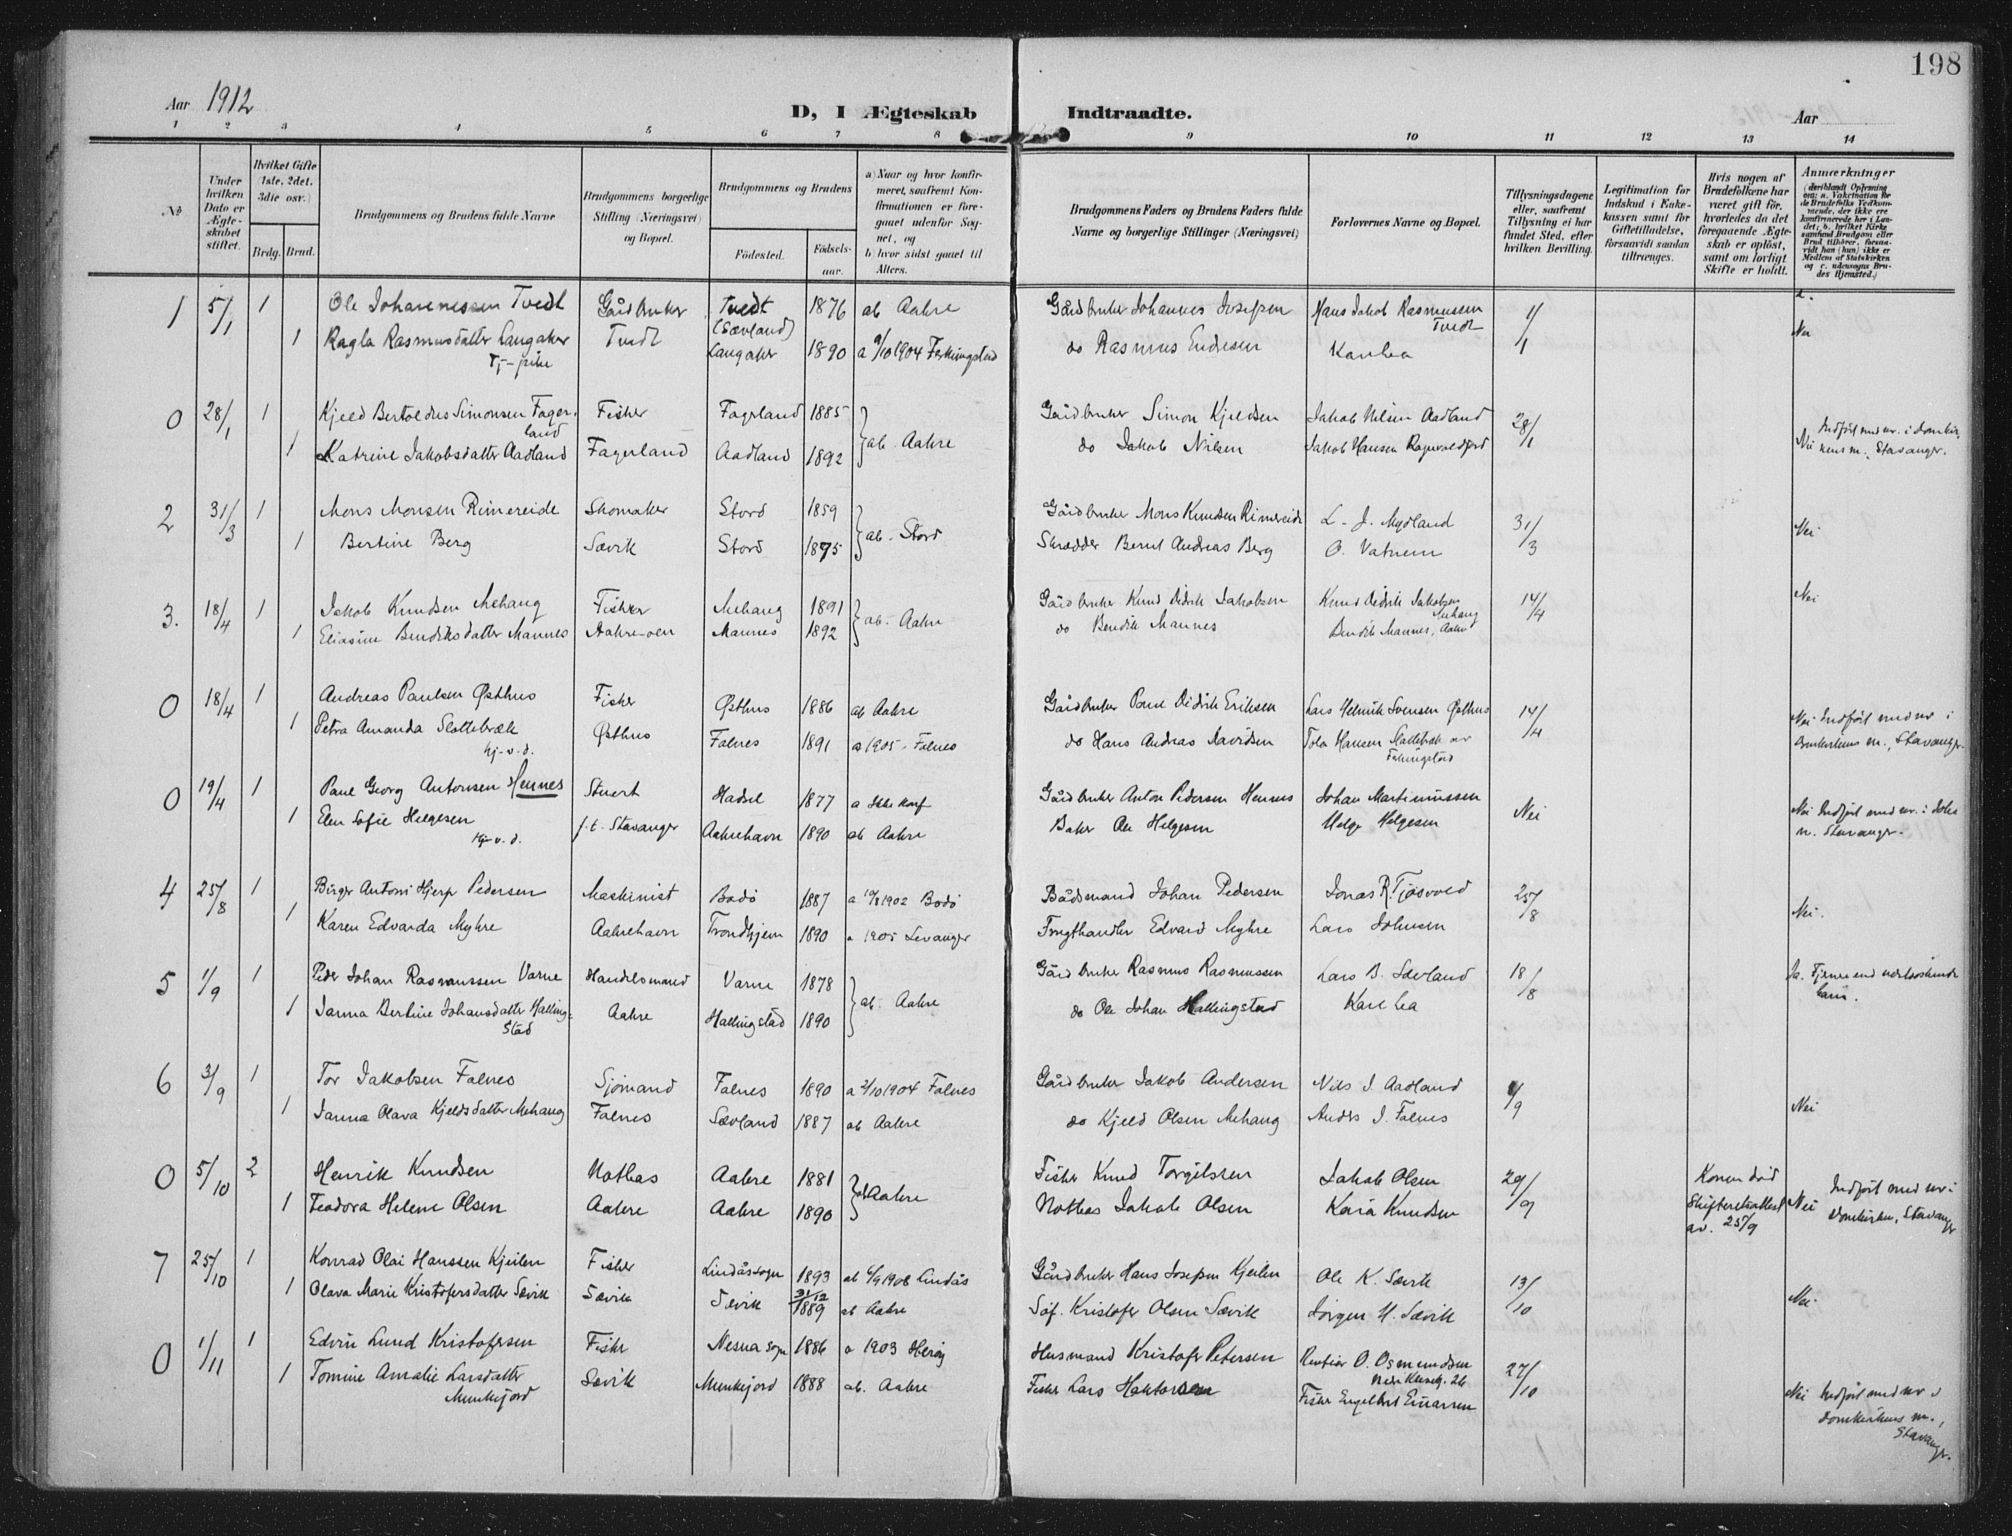 198
Aar 1912
D, I Ægteskab Indtraadte. Aar
1 2 3 4 5 6 7 8 9 10 11 12 13 14
No
Under hvilken Dato er Ægteskabet stiftet.
Hvilket Gifte (1ste, 2det, 3die osv.)
Brdg. Brud.
Brudgommens og Brudens fulde Navne
Brudgommens borgerlige Stilling (Næringsvei) og Bopæl.
Brudgommens og Brudens
Fødested. Fødselsaar.
a) Naar og hvor konfirmeret, saafremt Konfirmationen er foregaaet udenfor Sognet, og
b) hvor sidst gaaet til Alters.
Brudgommens Faders og Brudens Faders fulde Navne og borgerlige Stillinger (Næringsvei)
Forlovernes Navne og Bopæl.
Tillysningsdagene eller, saafremt Tillysning ei har fundet Sted, efter hvilken Bevilling.
Legitimation for Indskud i Enkekassen samt for Giftetilladelse, forsaavidt saadan tiltrænges.
Hvis nogen af Brudefolkene har været gift før, hvorledes da det foregaaende Ægteskab er opløst, samt om lovligt Skifte er holdt.
Anmærkninger
1 5/1 1 Ole Johannessen Tvedt Gårdbruker Tvedt (Sævland) 1876 ab Aakre Gårdbruker Johannes Josefsen Hans Jakob Rasmussen Tvedt 1/1 Nei
1 Ragla Rasmusdatter Langaker Tvedt Langaker 1890 a 9/10 1904 Ferkingstad do Rasmus Endresen
0 28/1 1 Kjeld Bertoldus Simonsen Fagerland Fisker Fagerland 1885 ab. Aakre Gårdbruker Simon Kjeldsen Jakob Nilsen Aadland 28/1 Nei Indført med nr. i Domkirkens m., Stavanger.
1 Katrine Jakobsdatter Aadland Fagerland Aadland 1892 do Jakob Nilsen Jakob Hansen
2 31/3 1 Mons Monsen Rimereide Skomaker Stord 1859 ab. Stord Gårdbruker Mons Knudsen Rimereide L. J. Mydland 31/3 Nei
1 Bertine Berg Sævik Stord 1875 Skrædder Bernt Andreas Berg O. Vatnem
3. 18/4 1 Jakob Knudsen Mehaug Fisker Mehaug 1891 ab. Aakre Gårdbruker Knud Didrik Jakobsen Knud Didrik Jakobsen Mehaug 14/4 Nei
1 Eliasine Bendiksdatter Mannes Aakre-øen Mannes 1892 do Bendik Mannes Bendik Mannes, Aakre
0 18/4 1 Andreas Paulsen Østhus Fisker Østhus 1886 ab Aakre Gårdbruker Paul Didrik Eriksen Lars Helmik Svensen Østhus 14/4 Nei Indført med nr i Domkirkens m., Stavanger.
1 Petra Amanda Slottebræk Østhus Falnes 1891 a 1905 Falnes do Hans Andreas Davidsen
hj. v. d.
0 19/4 1 Paul Georg Antonsen Hennes Stuert Hadsel 1877 a Ikke konf Gårdbruker Anton Pedersen Hennes Johan Martinussen Nei
1 Elen Sofie Helgesen f.t. Stavanger Aakrehavn 1890 ab Aakre Baker Ole Helgesen Helge Helgesen
hj. v. d.
4 25/8 1 Birger Antoni Hjerp Pedersen Maskinist Bodø 1887 a 10/8 1902 Bodø Bådsmand Johan Pedersen Jonas R. Tjøsvold 25/8 Nei.
1 Karen Edvarda Myhre Aakrehavn Trondhjem 1890 a 1905 Levanger Frugthandler Edvard Myhre Lars Johnsen
5 1/9 1 Peder Johan Rasmussen Varne Handelsmand Varne 1878 ab. Aakre Gårdbruker Rasmus Rasmussen Lars B. Sævland 18/8
1 Janna Bertine Johansdatter Hallingstad Aakre Hallingstad 1890 do Ole Johan Hallingstad
6 3/9 1 Tor Jakobsen Falnes Sjømand Falnes 1890 a 2/10 1904 Falnes Gårdbruker Jakob Andersen Nils J Aadland 1/9 Nei
1 Janna Olava Kjeldsdatter Mehaug Falnes Sævland 1887 ab Aakre do Kjeld Olsen Mehaug Anders J. Falnes
0 5/10 2 Henrik Knudsen Notbas Aakre 1881 ab Aakre Fisker Knud Torgilsen Jakob Olsen 29/9 Konen død Skifteretsattest av. 25/9 Nei Indført med nr i Domkirken, Stavanger
1 Teodora Helene Olsen Aakre Aakre 1890 Notbas Jakob Olsen Kaia Knudsen
7 25/10 1 Konrad Olai Hanssen Kjeilen Fisker Lindåssogn 1893 ab 4/9 1908 Lindås Gårdbruker Hans Josefsen Kjeilen Ole K. Sævik 13/10 Nei.
1 Olava Marie Kristofersdatter Sævik Sævik Sævik 31/12 1889 ab Aakre Søf. Kristofer Olsen Sævik Jørgen H. Sævik
0 1/11 1 Edvin Lund Kristofersen Fisker Nesna sogn 1886 a 1903 Herøy Husmand Kristofer Petersen Rentier O. Osmundsen 27/10
1 Tomine Amalie Larsdatter Munkejord Sævik Munkejord 1888 ab. Aakre Fisker Lars Haktorsen Fisker Engelbret Einarsen Nei Indført med nr i Domkirkens m., Stavanger.